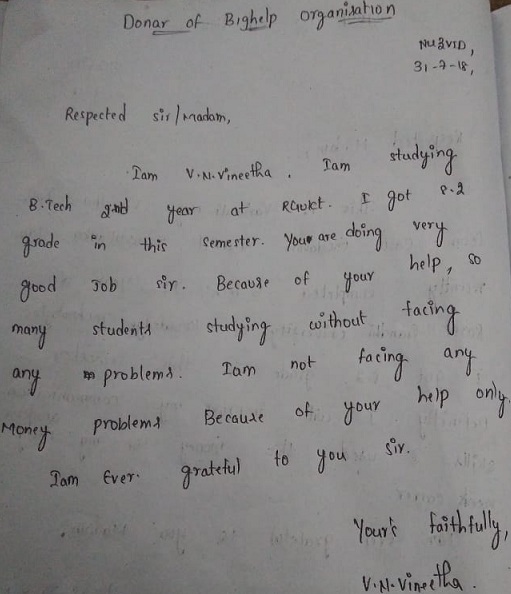 Donar of Bighelp organisation
NUZVID,
31-7-18,
Respected sir/madam,
Iam V.N.Vineetha. Iam studying
B.Tech 2nd year at RGUKT. I got 8.2
grade in this semester. You are doing very
good Job sir. Because of your help, so
many students studying without facing
any problems. Iam not facing any
Money problems Because of your help only.
Iam Ever grateful to you sir.
Your's faithfully,
V.N.Vineetha.